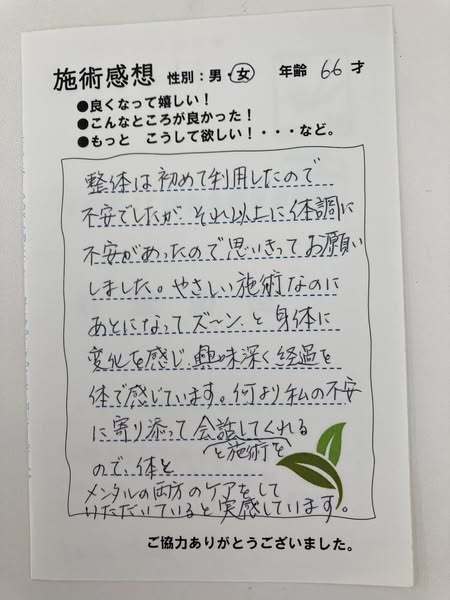 施術感想 性別：男・女 年齢 66才
●良くなって嬉しい！
●こんなところが良かった！
●もっと こうして欲しい！・・・など。
整体は初めて利用したので
不安でしたが、それ以上に体調に
不安があったので思いきってお願い
しました。やさしい施術なのに
あとになってズ〜ン、と身体に
変化を感じ、興味深く経過を
体で感じています。何より私の不安
に寄り添って会話してくれる
と施術を
ので、体と
メンタルの両方のケアをして
いただいていると実感しています。
ご協力ありがとうございました。